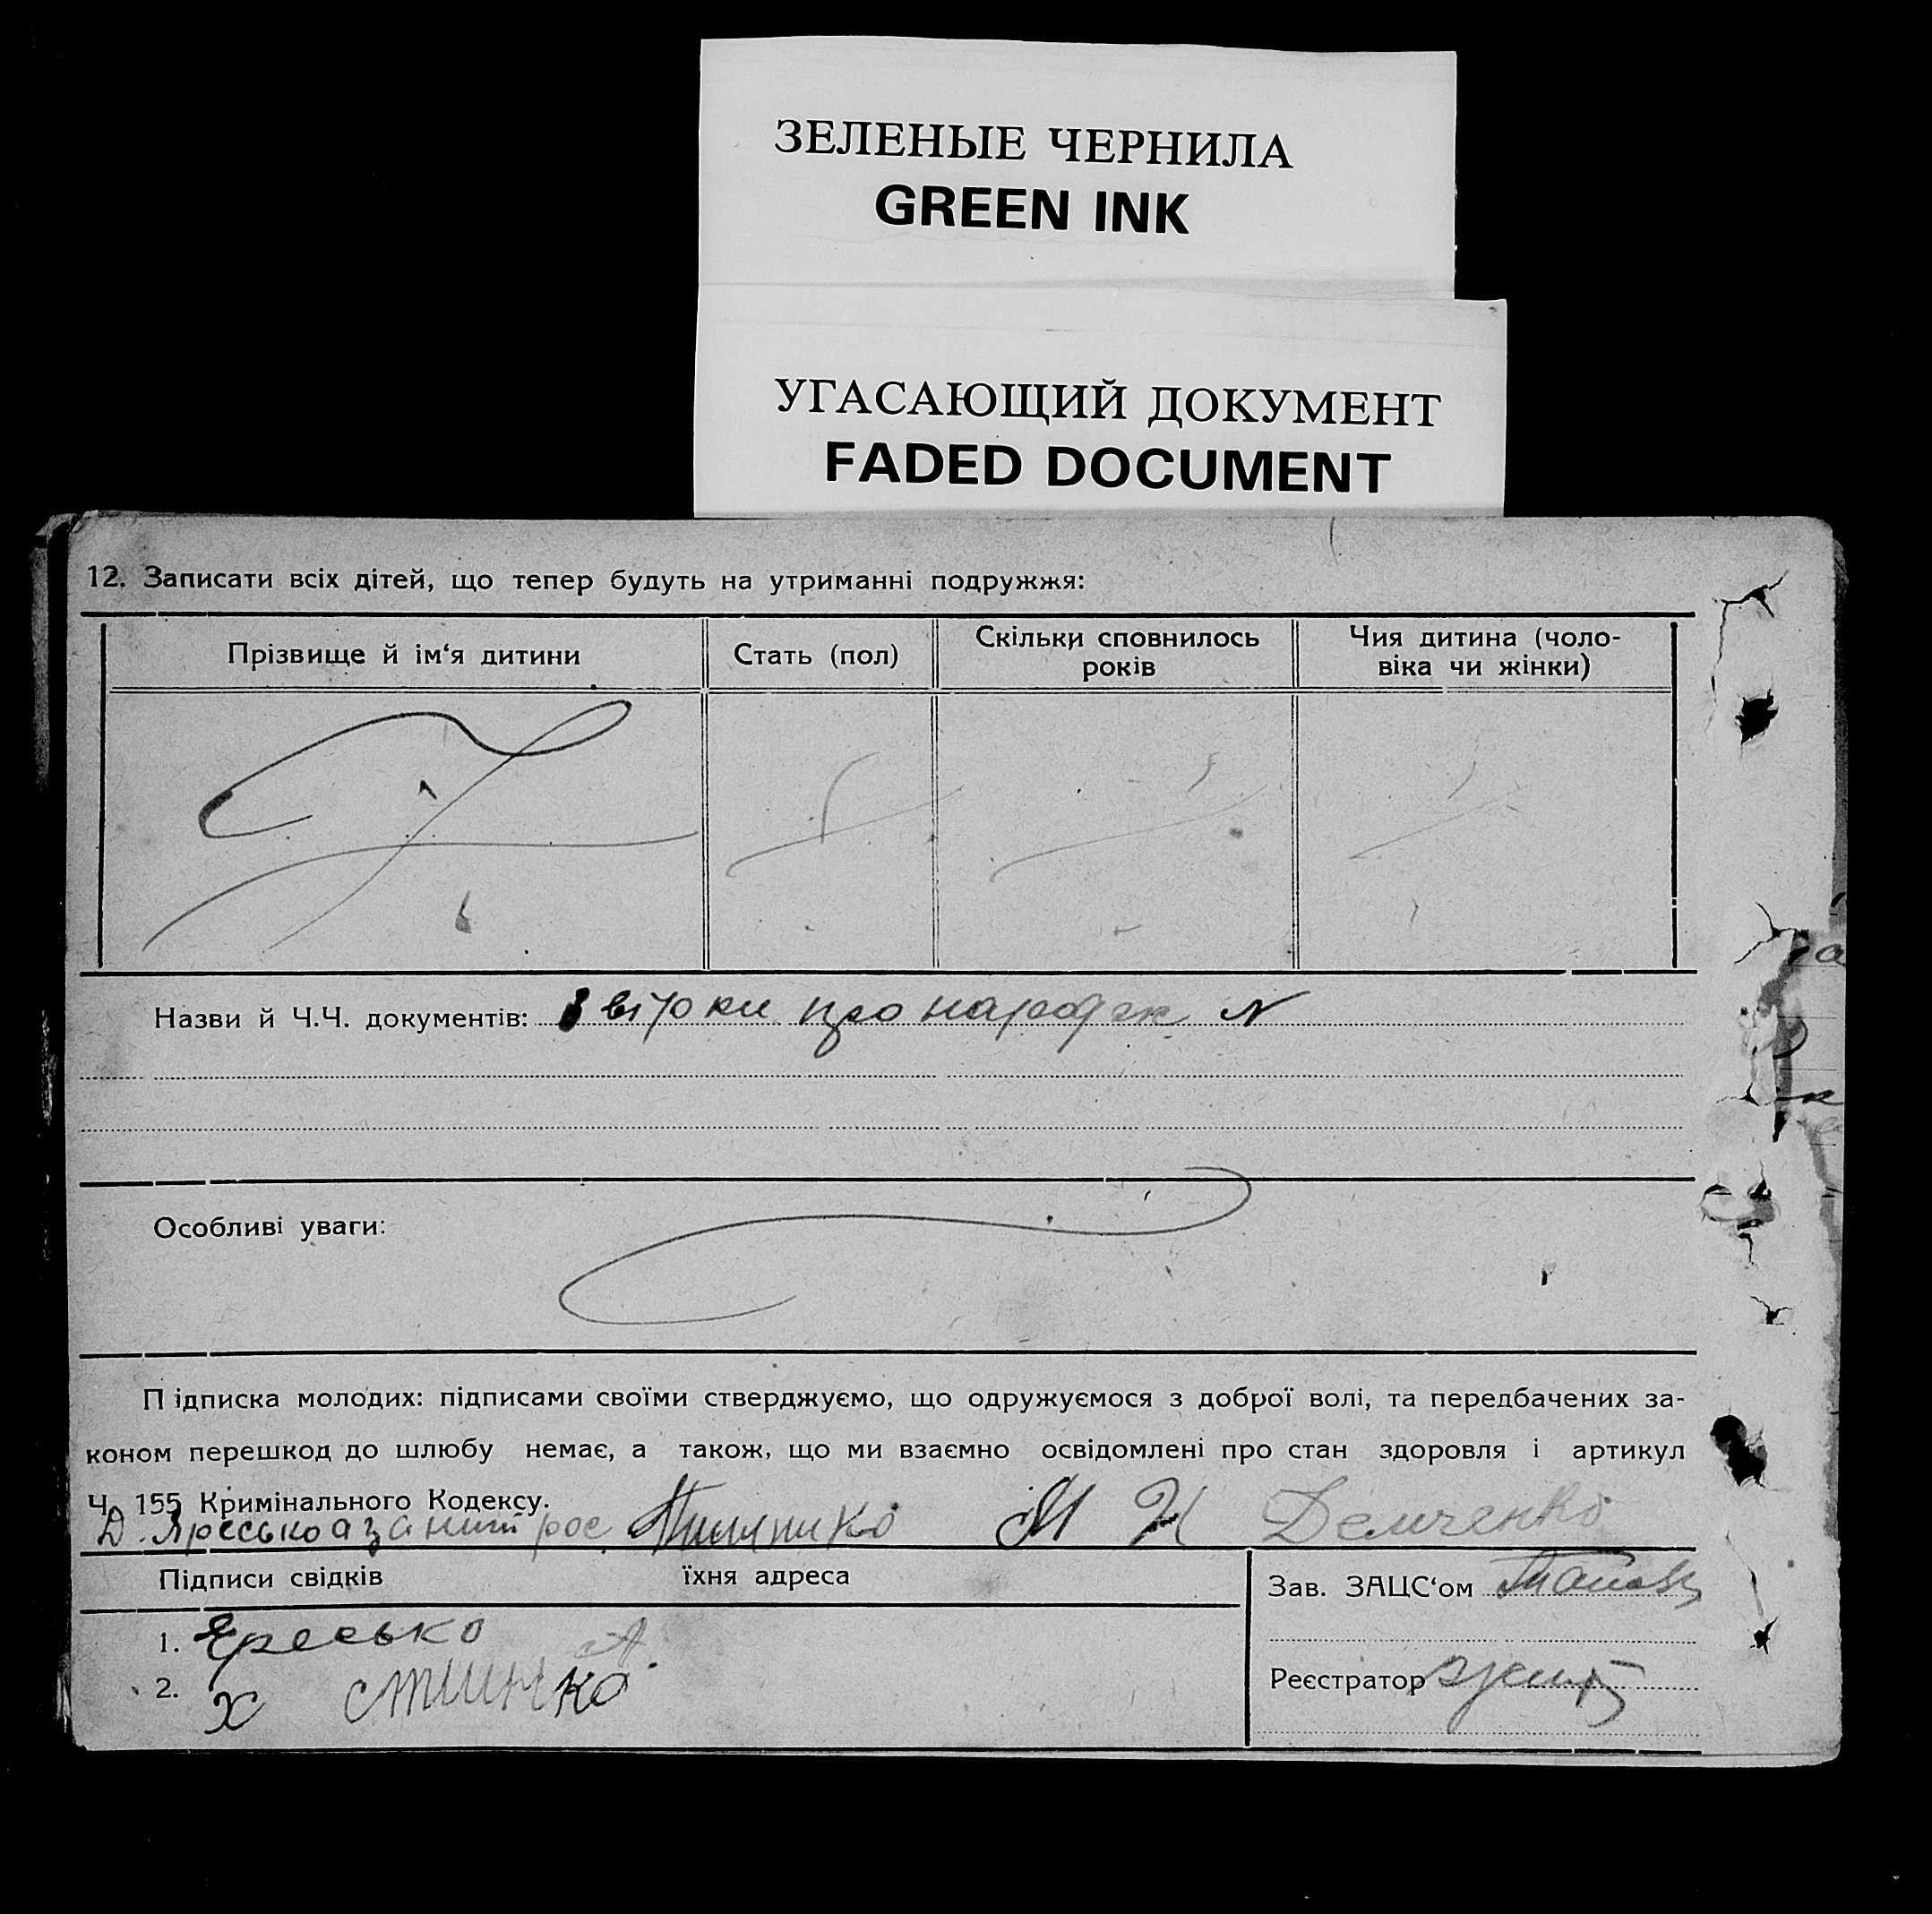 ЗЕЛЕНЫЕ ЧЕРНИЛА
GREEN INK
УГАСАЮЩИЙ ДОКУМЕНТ
FADED DOCUMENT
12. Записати всіх дітей, що тепер будуть на утриманні подружжя:
Прізвище й ім‘я дитини Стать (пол) Скільки сповнилось років Чия дитина (чоло-віка чи жінки)
Назви й Ч.Ч. документів: про N
Особливі уваги:
Підписка молодих: підписами своїми стверджуємо, що одружуємося з доброї волі, та передбачених за-
коном перешкод до шлюбу немає, а також, що ми взаємно освідомлені про стан здоровля і артикул
Ч. 155 Кримінального Кодексу.
Д. Яресько М Н Демченко
Підписи свідків їхня адреса
Зав. ЗАЦС‘ом
1. Яресько
2. Х
Реєстратор